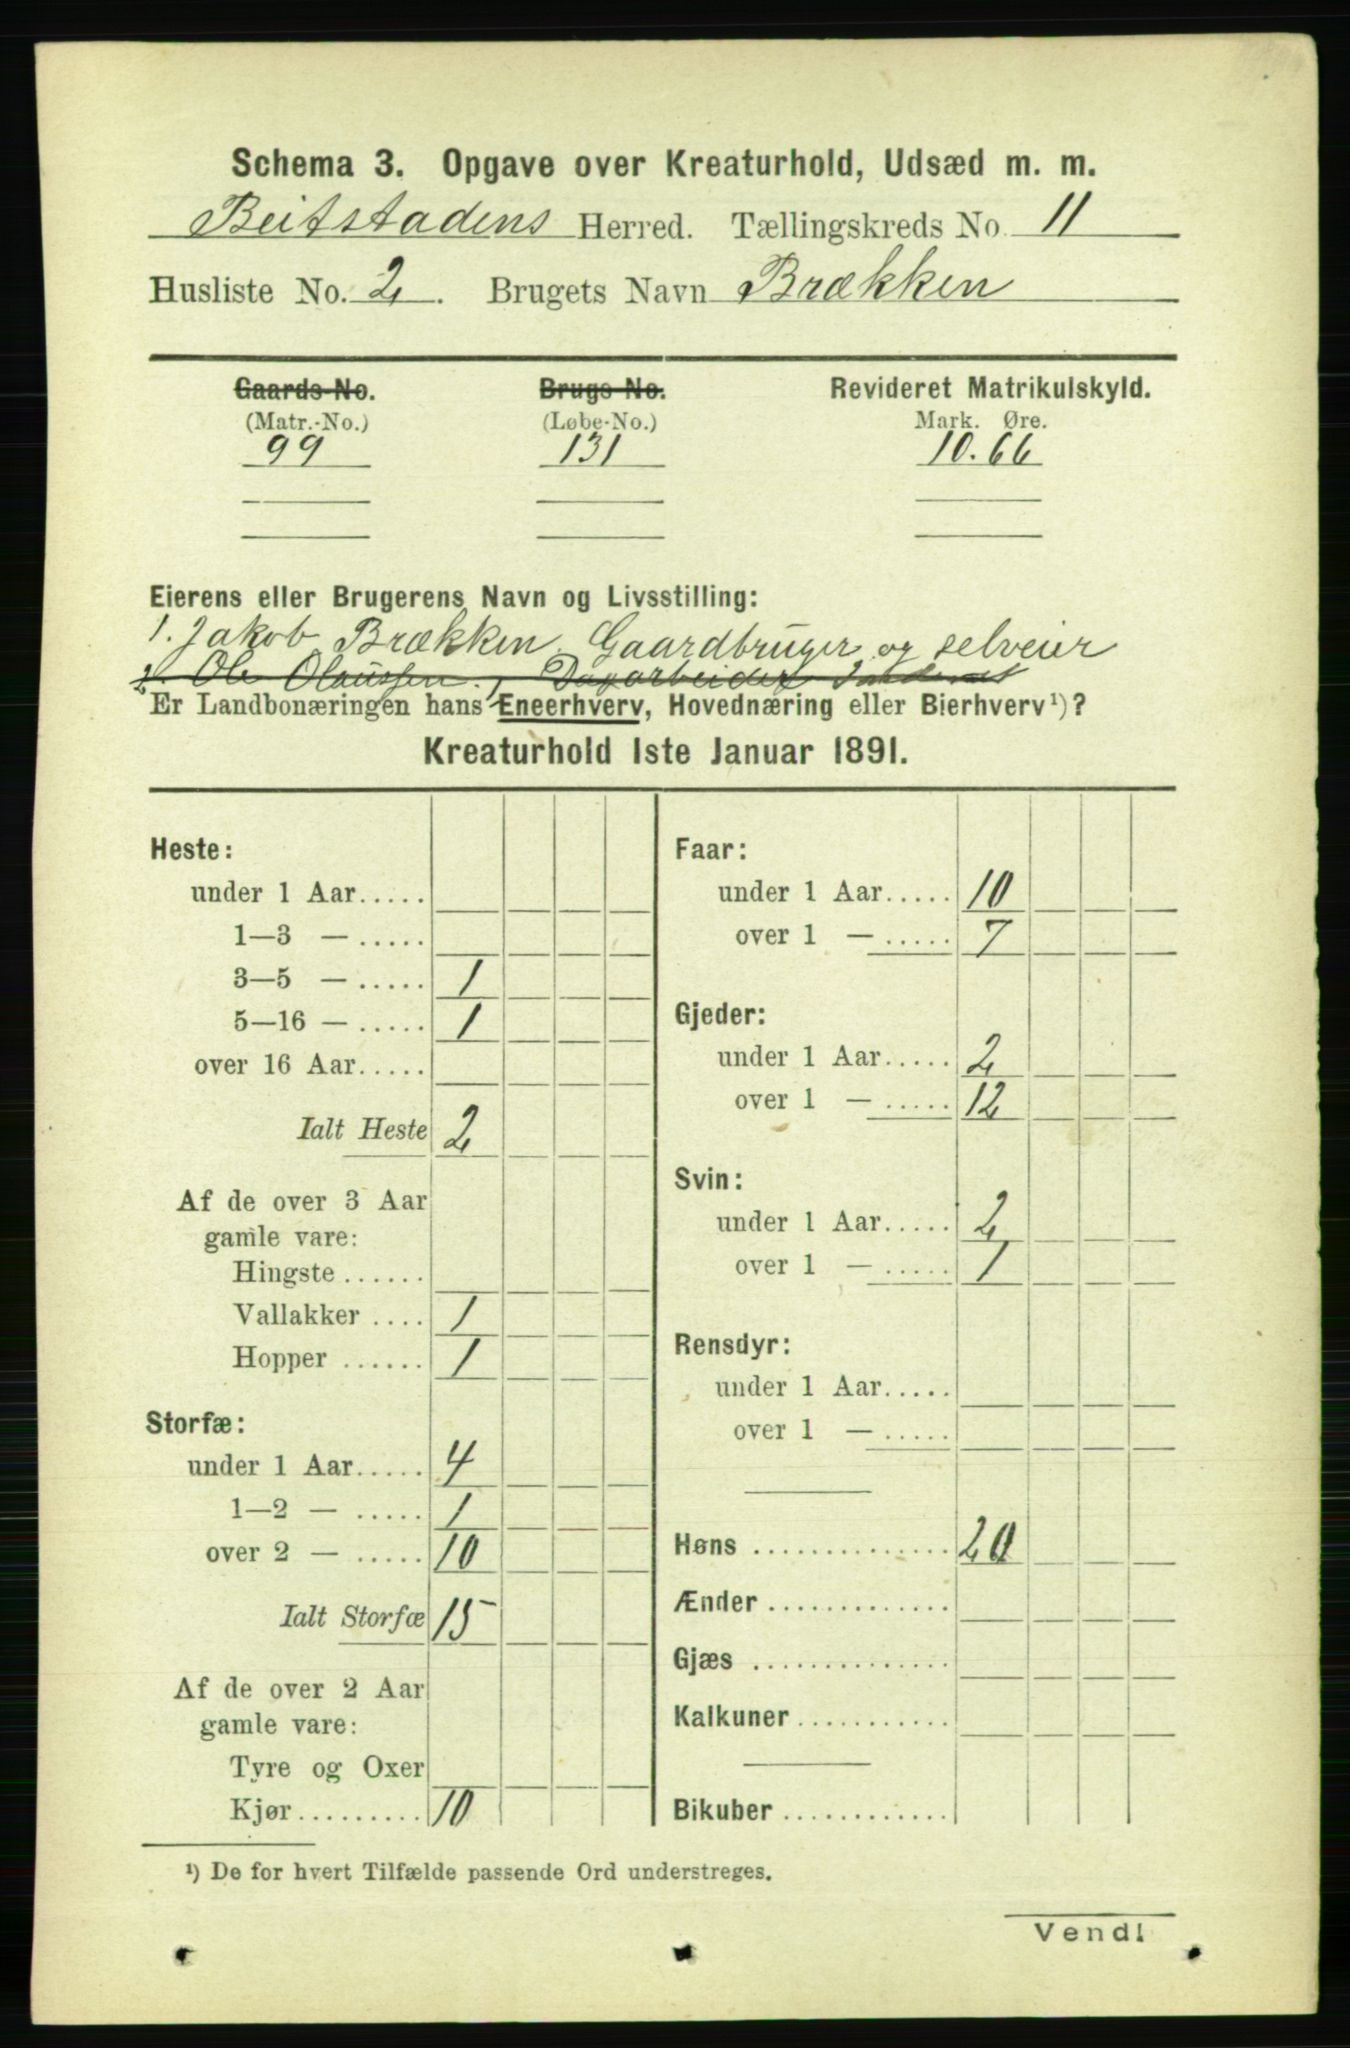 Schema 3. Opgave over Kreaturhold, Udsæd m. m.
Beitstadens Herred. Tællingskreds No. 11
Husliste No. 2. Brugets Navn Brækken
Gaards-No. Brugs-No. Revideret Matrikulskyld.
(Matr.-No.) (Løbe-No.) Mark. Øre.
99 131 10.66
Eierens eller Brugerens Navn og Livsstilling:
1. Jakob Brækken. Gaardbruger og selveier
2. Ole Olaussen, Dagarbeider
Er Landbonæringen hans Eneerhverv, Hovednæring eller Bierhverv¹)?
Kreaturhold 1ste Januar 1891.
Heste:
under 1 Aar.....
1—3 — .....
3—5 — ..... 1
5—16 — ..... 1
over 16 Aar.....
Ialt Heste 2
Af de over 3 Aar
gamle vare:
Hingste......
Vallakker .... 1
Hopper ...... 1
Storfæ:
under 1 Aar..... 4
1—2 — ..... 1
over 2 — ..... 10
Ialt Storfæ 15
Af de over 2 Aar
gamle vare:
Tyre og Oxer
Kjør......... 10
Faar:
under 1 Aar..... 10
over 1 — ..... 7
Gjeder:
under 1 Aar..... 2
over 1 — ..... 12
Svin:
under 1 Aar..... 2
over 1 — ..... 1
Rensdyr:
under 1 Aar.....
over 1 — .....
Høns .............. 20
Ænder .............
Gjæs ..............
Kalkuner...........
Bikuber ............
¹) De for hvert Tilfælde passende Ord understreges.
Vend!